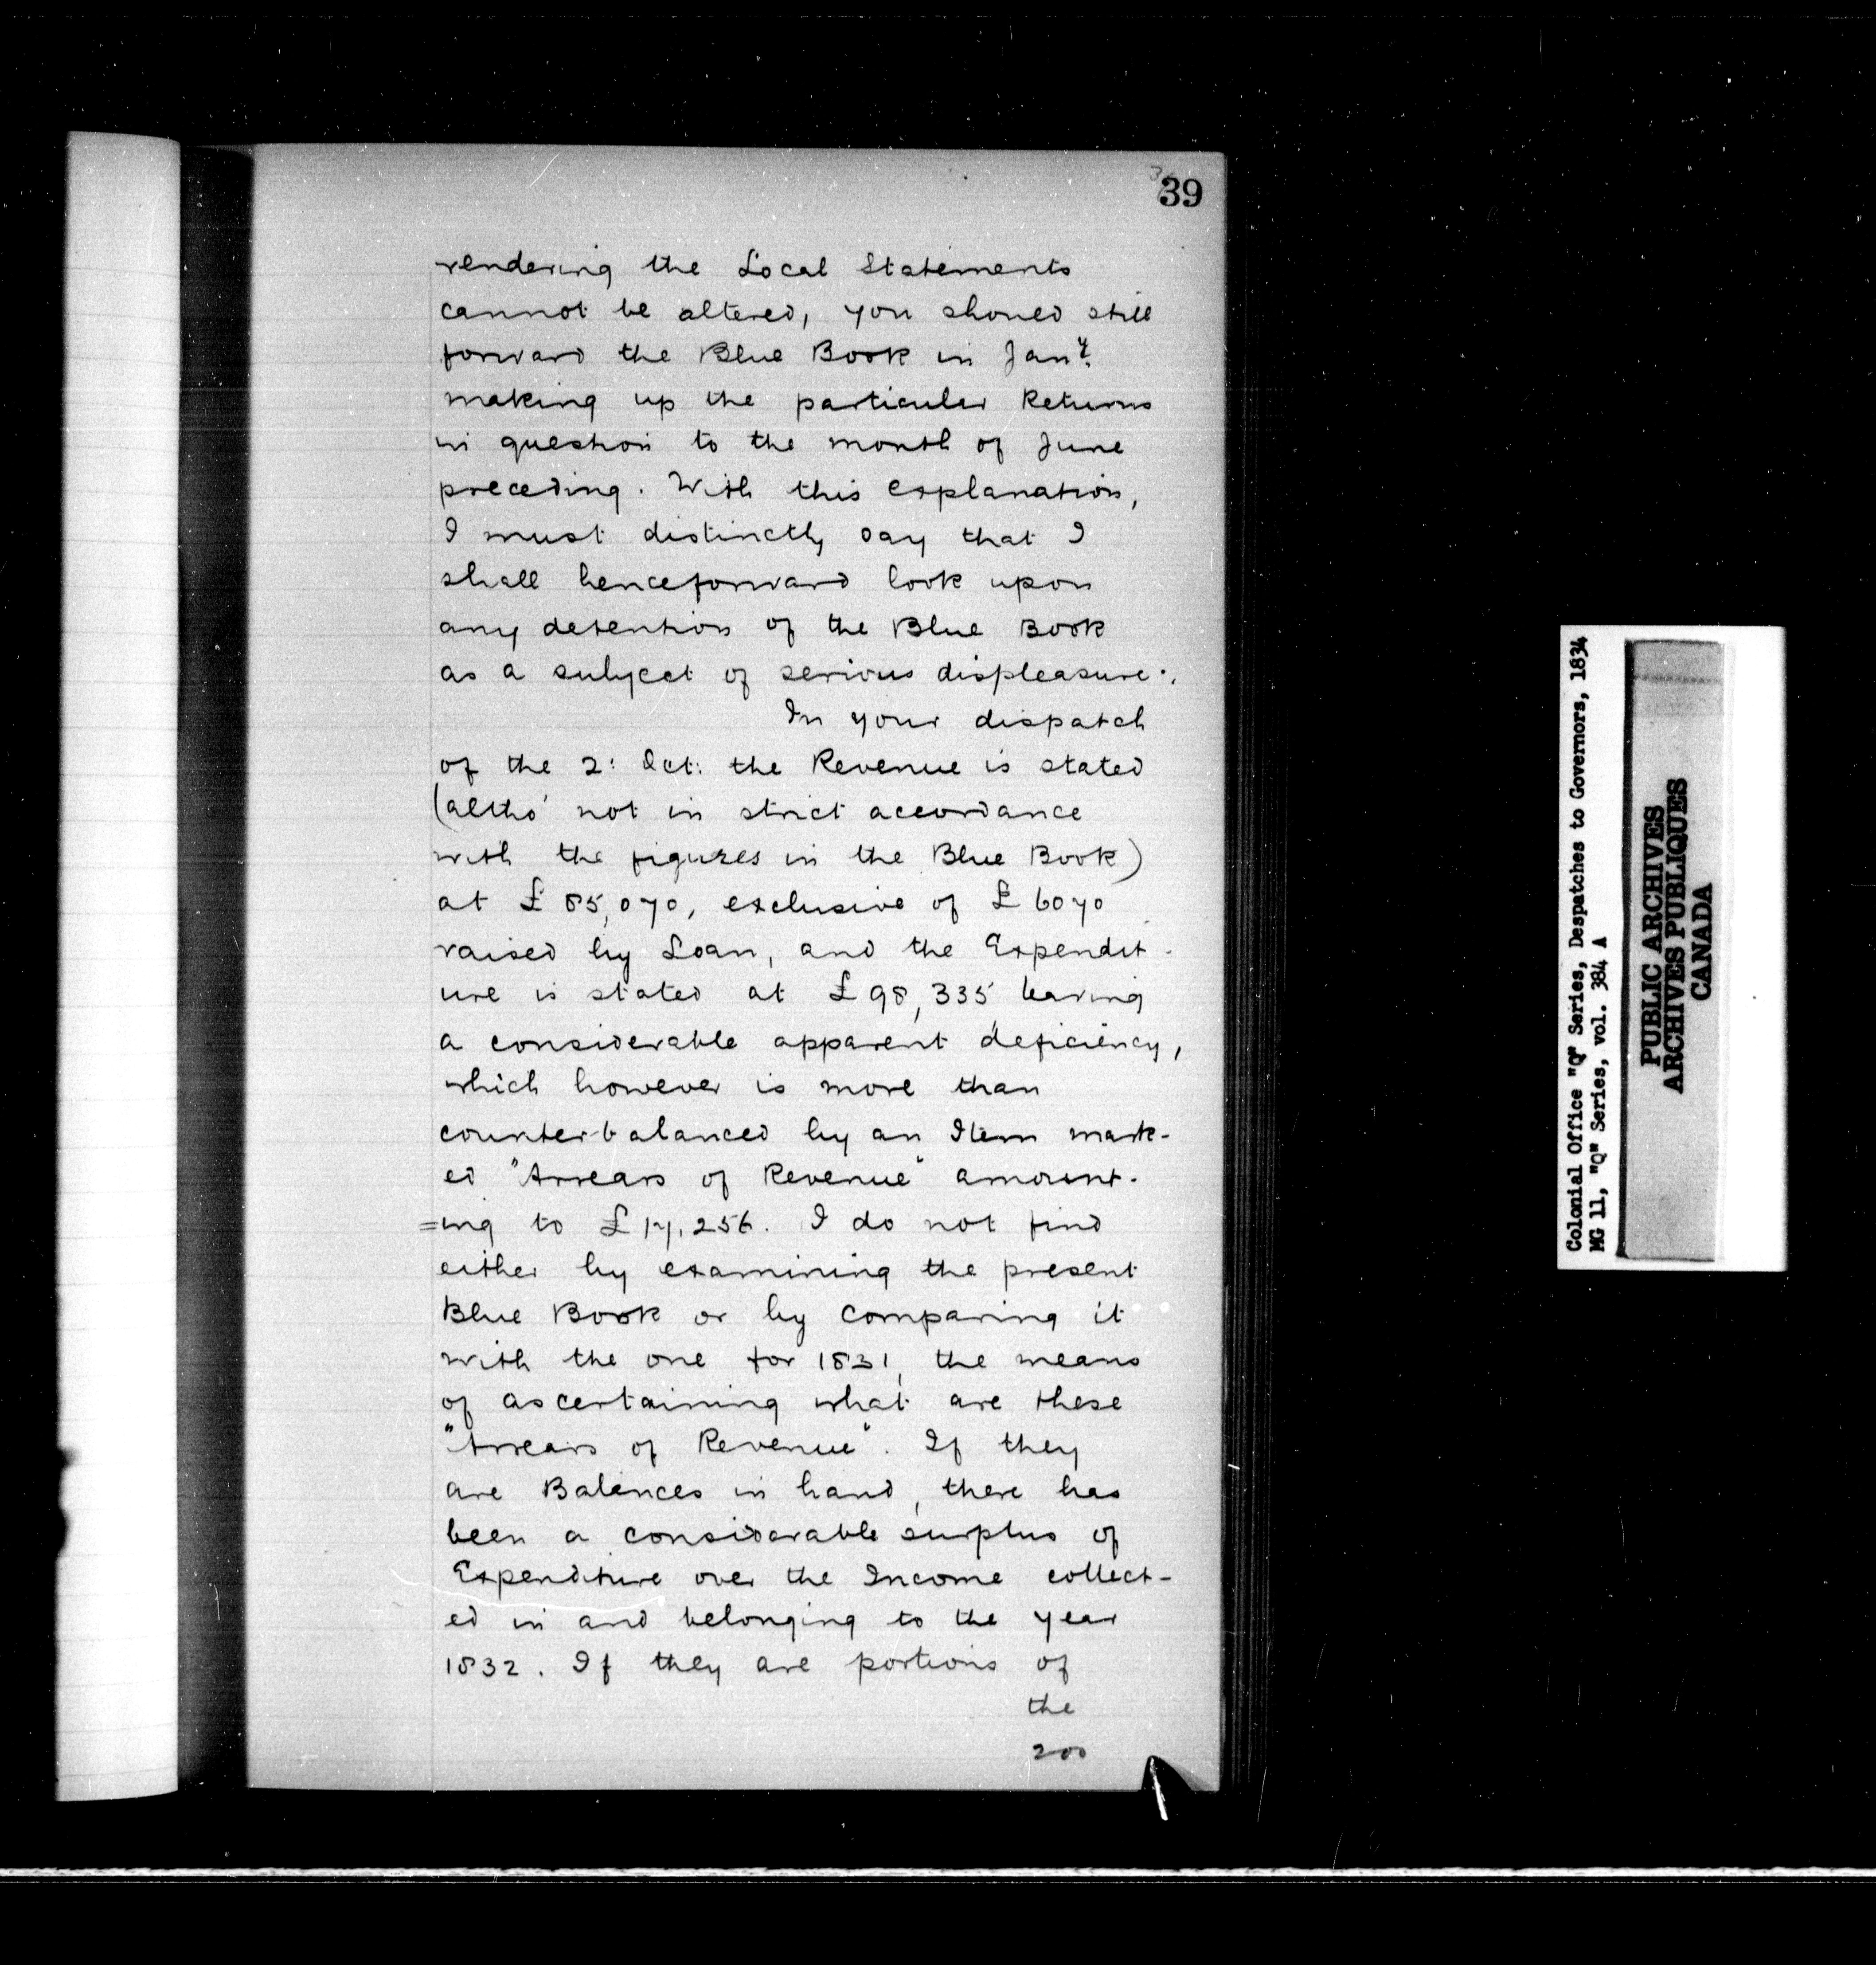 39
rendering the Local Statements
cannot be altered, you should still
forward the Blue Book in Jany.
making up the particular Returns
in question to the month of June
preceding. With this explanation,
I must distinctly say that I
shall henceforward look upon
any detention of the Blue Book
as a subject of serious displeasure.,
In your dispatch
of the 2: Oct: the Revenue is stated
(altho' not in strict accordance
with the figures in the Blue Book)
at £85,070, exclusive of £6070
raised by Loan, and the Expendit-
ure is stated at £98,335 leaving
a considerable apparent deficiency,
which however is more than
counterbalanced by an Item mark-
ed "Arrears of Revenue" amount-
=ing to £17,256. I do not find
either by examining the present
Blue Book or by comparing it
with the one for 1831, the means
of ascertaining what are these
"Arrears of Revenue". If they
are Balances in hand, there has
been a considerable surplus of
Expenditure over the Income collect-
ed in and belonging to the year
1832. If they are portions of
the
200
Colonial Office "Q" Series, Despatches to Governors, 1834
MG 11, "Q" Series, vol. 384 A
PUBLIC ARCHIVES
ARCHIVES PUBLIQUES
CANADA